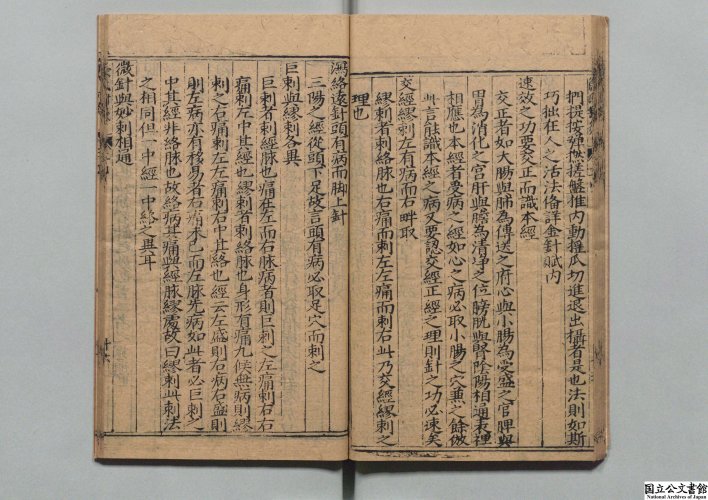 捫提按彈撚搓盤推內動搖爪切進退出攝者是也法則如斯
巧拙在人之活法備詳金針賦內
速效之功要交正而識本經
交正者如大腸與肺為傳送之府心與小腸為受盛之官脾與
胃為消化之宮肝與膽為清淨之位膀胱與腎陰陽相通表裡
相應也本經者受病之經如心之病必取小腸之穴兼之餘倣
此言能識本經之病又要認交經正經之理則針之功必速矣
交經繆刺左有病而右畔取
繆刺者刺絡脉也右痛而刺左左痛而刺右此乃交經繆刺之
理也
瀉絡遠針頭有病而脚上針
三陽之經從頭下足故言頭有病必取足穴而刺之
巨刺與繆刺各異
巨刺者刺經脉也痛在左而右脉病者則巨刺之左痛刺右右
痛刺左中其經也繆刺者刺絡脉也身形有痛九候無病則繆
刺之右痛刺左左痛刺右中其絡也經云左盛則右病右盛則
則左病亦有移易者右痛未已而左脉先病如此者必巨刺之
中其經非絡脉也故絡病其痛與經脉繆處故曰繆刺此刺法
之相同但一中經一中絡之異耳
微針與妙刺相通
國立公文書館
National Archives of Japan